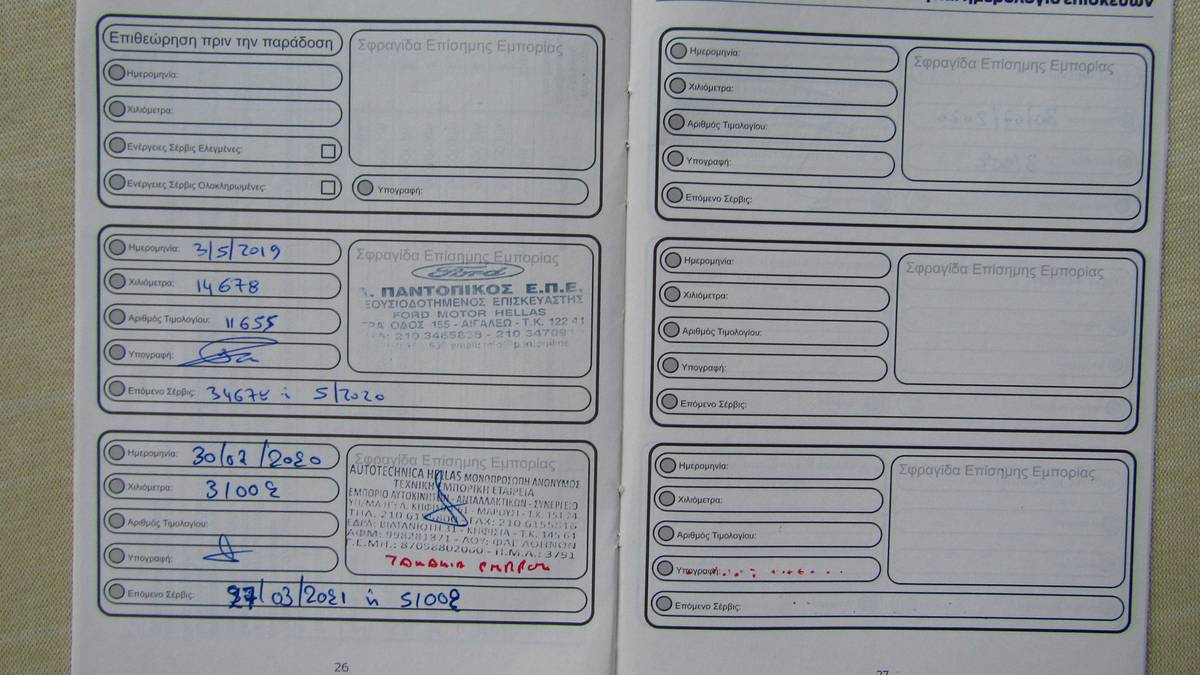 Επιθεώρηση πριν την παράδοση
Σφραγίδα Επίσημης Εμπορίας
Ημερομηνία:
Χιλιόμετρα:
Ενέργειες Σέρβις Ελεγμένες:
Ενέργειες Σέρβις Ολοκληρωμένες:
Υπογραφή:
Ημερομηνία: 3/5/2019
Χιλιόμετρα: 14678
Αριθμός Τιμολογίου: 11655
Υπογραφή:
Επόμενο Σέρβις: 34678 ή 5/2020
Σφραγίδα Επίσημης Εμπορίας
Ford
ΠΑΝΤΟΠΙΚΟΣ Ε.Π.Ε.
ΕΞΟΥΣΙΟΔΟΤΗΜΕΝΟΣ ΕΠΙΣΚΕΥΑΣΤΗΣ
FORD MOTOR HELLAS
ΟΔΟΣ 155 - ΑΙΓΑΛΕΩ - Τ.Κ. 122 41
Ημερομηνία: 30/07/2020
Χιλιόμετρα: 31008
Αριθμός Τιμολογίου:
Υπογραφή:
Επόμενο Σέρβις: /03/2021 ή 51008
Σφραγίδα Επίσημης Εμπορίας
AUTOTECHNICA HELLAS ΜΟΝΟΠΡΟΣΩΠΗ ΑΝΩΝΥΜΟΣ
ΤΕΧΝΙΚΗ ΕΜΠΟΡΙΚΗ ΕΤΑΙΡΕΙΑ
ΕΜΠΟΡΙΟ ΑΥΤΟΚΙΝΗΤΩΝ - ΑΝΤΑΛΛΑΚΤΙΚΩΝ - ΣΥΝΕΡΓΕΙΟ
ΜΑΡΟΥΣΙ - Τ.Κ. 151 24
ΤΗΛ. 210 FAX: 210 6155
ΚΗΦΙΣΙΑ - Τ.Κ. 145 64
ΑΦΜ: 998283871 - ΔΟΥ: ΦΑΕ ΑΘΗΝΩΝ
Γ.Ε.ΜΗ.: 87098802000 - Π.Μ.Α.: 3791
ΤΑΚΑΚΙΑ ΕΜΠΡΟΣ
26
ημερολόγιο επισκευών
Ημερομηνία:
Χιλιόμετρα:
Αριθμός Τιμολογίου:
Υπογραφή:
Επόμενο Σέρβις:
Σφραγίδα Επίσημης Εμπορίας
Ημερομηνία:
Χιλιόμετρα:
Αριθμός Τιμολογίου:
Υπογραφή:
Επόμενο Σέρβις:
Σφραγίδα Επίσημης Εμπορίας
Ημερομηνία:
Χιλιόμετρα:
Αριθμός Τιμολογίου:
Υπογραφή:
Επόμενο Σέρβις:
Σφραγίδα Επίσημης Εμπορίας
27